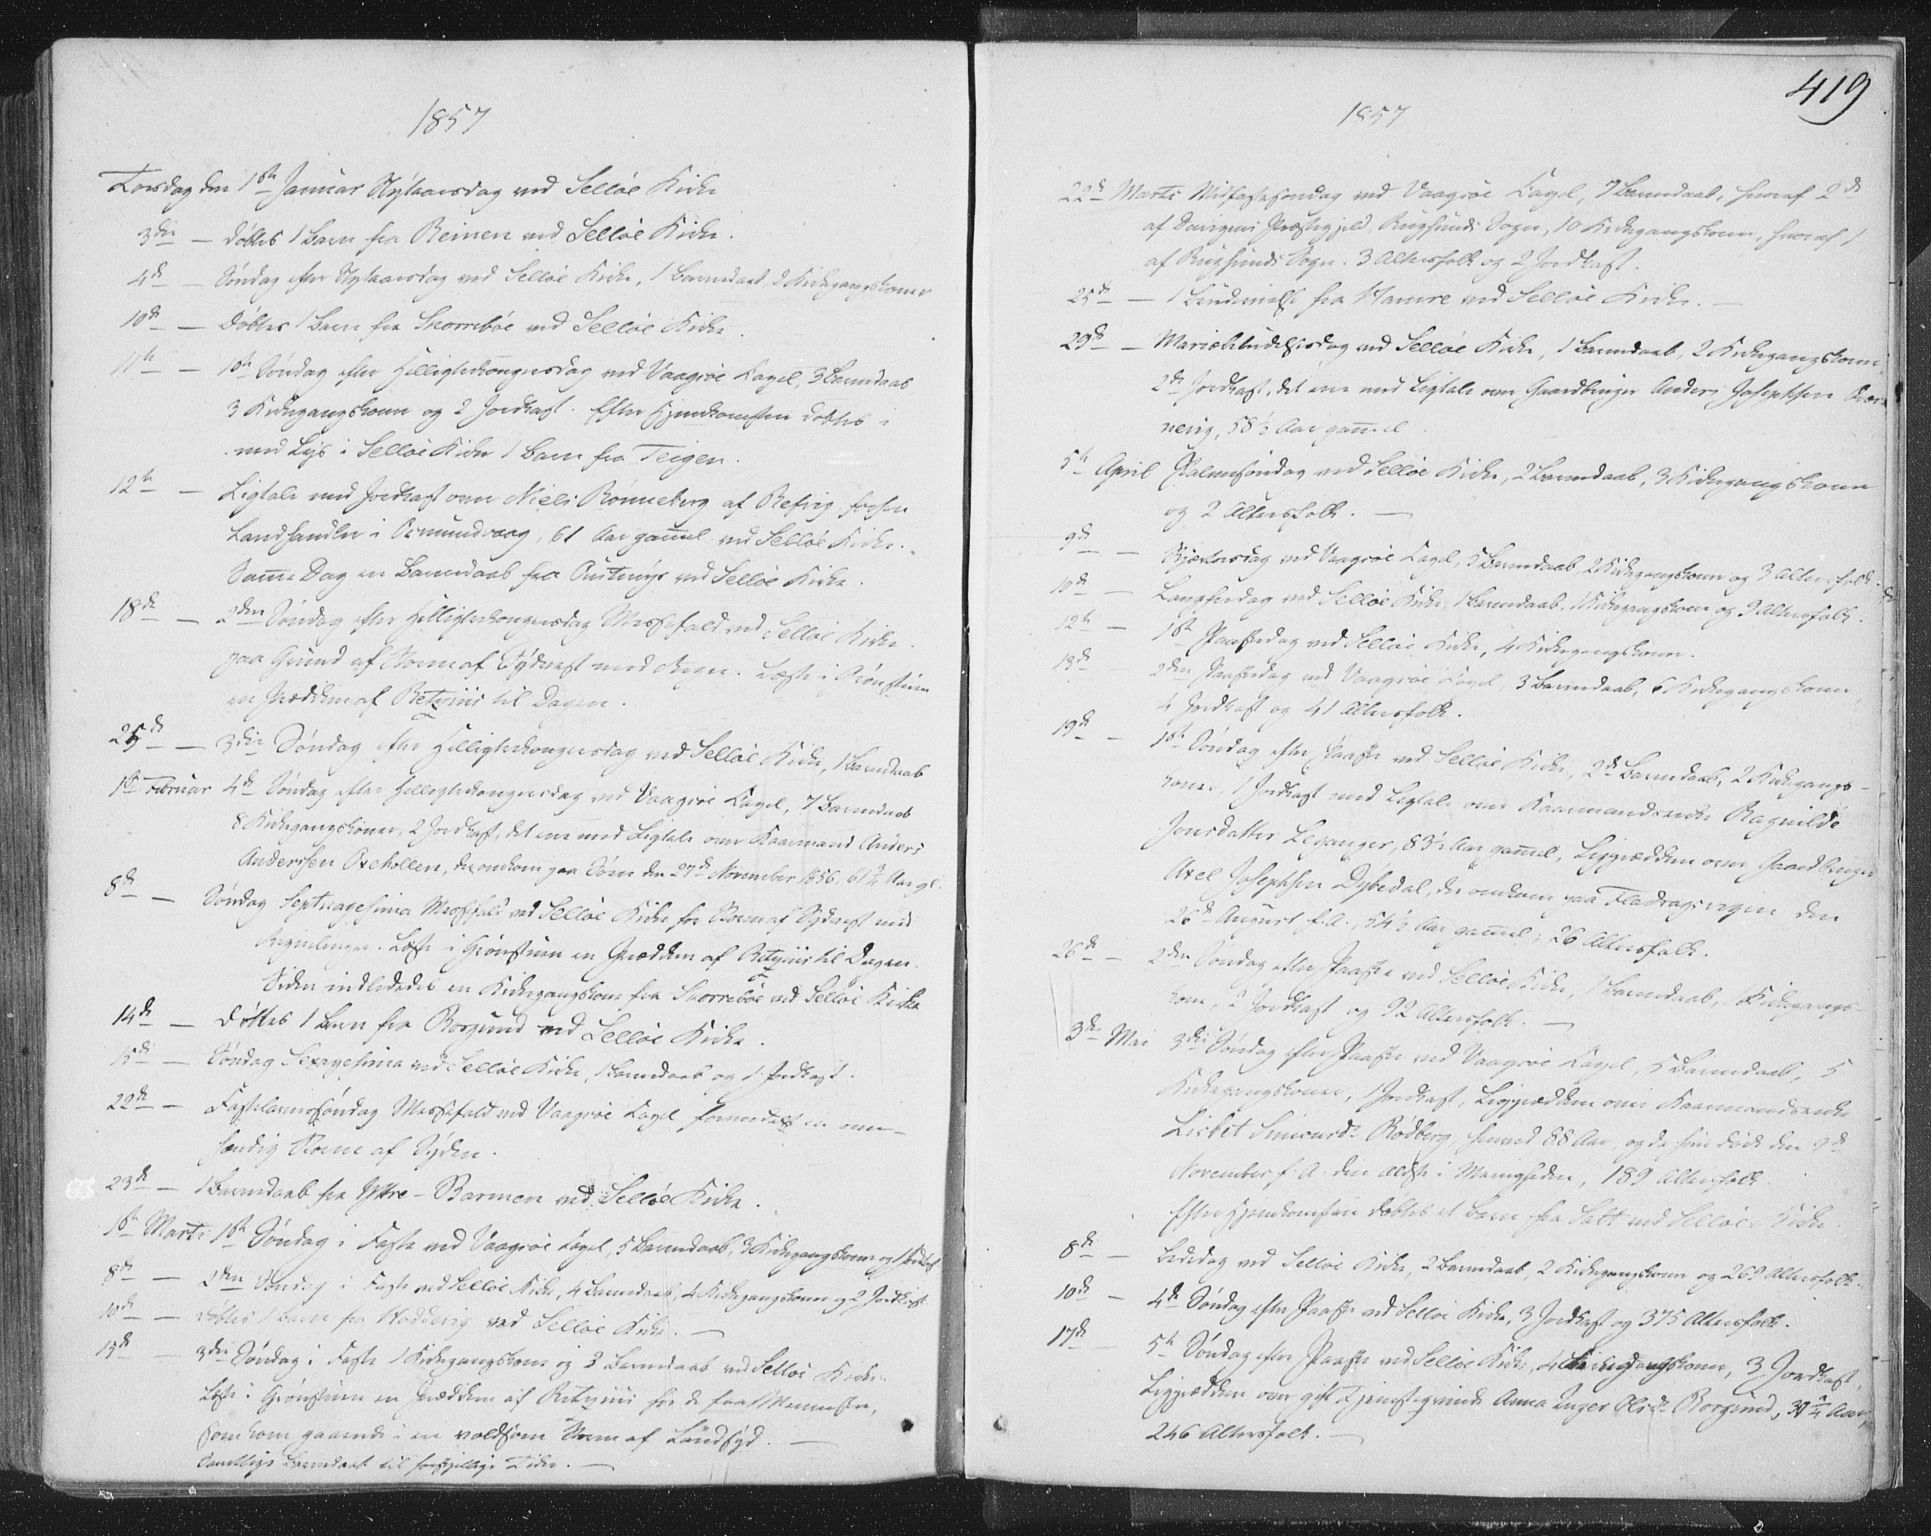 1857
Torsdag den 1ste Januar Nytaarsdag ved Selløe Kirke
3die — Døbtes 1 Barn fra Reinen ved Selløe Kirke.
4de — Søndag efter Nytaarsdag ved Selløe Kirke, 1 Barnedaab, 2 Kirkegangskoner
10de — Døbtes 1 Barn fra Snorrebøe ved Selløe Kirke.
11te — 1ste Søndag efter Helligtrekongersdag ved Vaagsøe Capel, 3 Barnedaab
3 Kirkegangskoner og 2 Jordkast. Efter Hjemkomsten døbtes i
med Lys i Selløe Kirke 1 Barn fra Teigen.
12te — Ligtale med Jordkast over Niels Rønneberg af Refvig, forhen
Landhandler i Osmundvaag, 61 Aar gammel ved Selløe Kirke.
Samme Dag en Barnedaab fra ved Selløe Kirke.
18de — 2den Søndag efter Helligtrekongersdag Messefald ved Selløe Kirke
paa Grund af Storm af Sydvest med Regn. Læste i
en Prædiken af til Dagen.
25de — 3die Søndag efter Helligtrekongersdag ved Selløe Kirke, 1 Barnedaab
1ste Februar 4de Søndag efter Helligtrekongersdag ved Vaagsøe Capel, 7 Barnedaab
8 Kirkegangskoner, 2 Jordkast, det ene med Ligtale over Kaarmand Anders
Anderssen Oxehollen, der omkom paa Søen den 27de November 1856, 61 3/4 Aar gl.
8de — Søndag Septuagesima Messefald ved Selløe Kirke for Storm af Sydvest med
Læste i en Prædiken af til Dagen.
Siden indlededes en Kirkegangskone fra Snorrebøe ved Selløe Kirke
14de — Døbtes 1 Barn fra Borgund ved Selløe Kirke.
15de — Søndag Sexagesima ved Selløe Kirke, 1 Barnedaab og 1 Jordkast.
22de — Fastelavnssøndag Messefald ved Vaagsøe Capel formedelst en
Storm af Syden.
23de — 1 Barnedaab fra Ytre-Barmen ved Selløe Kirke.
1ste Marts 1ste Søndag i Faste ved Vaagsøe Capel, 5 Barnedaab, 3 Kirkegangskoner og 1 Jordkast
8de — 2den Søndag i Faste ved Selløe Kirke, 4 Barnedaab, 4 Kirkegangskoner og 2 Jordkast
10de — Døbtes 1 Barn fra Hoddevig ved Selløe Kirke. —
15de — 3die Søndag i Faste 1 Kirkegangskone og 3 Barnedaab ved Selløe Kirke
Læste i en Prædiken af for de faa Mennesker,
som kom gaaende i en voldsom Storm af Landsyd. —
Samtlige Barnedaab til forskjellige Tider. —
419
1857
22de Marts Midfastesøndag ved Vaagsøe Capel, 7 Barnedaab, hvoraf 2de
af Præstegjeld, Rugsunds Sogn, 10 Kirkegangskoner, hvoraf 1
af Rugsunds Sogn. 3 Altersfolk og 2 Jordkast.
25de — 1 fra Hamre ved Selløe Kirke. —
29de — Mariæ Bebudelsesdag ved Selløe Kirke, 1 Barnedaab, 2 Kirkegangskoner,
2de Jordkast, det ene med Ligtale over Gaardbruger Anders Josephsen
58 1/2 Aar gammel
5te April Palmesøndag ved Selløe Kirke, 2 Barnedaab, 3 Kirkegangskoner
og 2 Altersfolk. —
9de — Skjærtorsdag ved Vaagsøe Capel, 5 Barnedaab, 2 Kirkegangskoner og 3 Altersfolk.
10de — Langfredag ved Selløe Kirke, 1 Barnedaab, 1 Kirkegangskone og 9 Altersfolk.
12te — 1ste Paaskedag ved Selløe Kirke, 4 Kirkegangskoner.
13de — 2den Paaskedag ved Vaagsøe Capel, 3 Barnedaab, 6 Kirkegangskoner
4 Jordkast og 41 Altersfolk.
19de — 1ste Søndag efter Paaske ved Selløe Kirke, 2de Barnedaab, 2 Kirkegangs-
koner, 1 Jordkast med Ligtale over Kaarmandsenke Ragnilde
Jonsdatter Leganger, 83 1/2 Aar gammel, Ligprædiken over Gaardbruger
Axel Josephsen Dybedal, der omkom paa den
26de August f.A., 54 1/2 Aar gammel; 26 Altersfolk.
26de — 2den Søndag efter Paaske ved Selløe Kirke, 1 Barnedaab, 1 Kirkegangs-
kone, 2 Jordkast og 92 Altersfolk. —
3de Mai 3die Søndag efter Paaske ved Vaagsøe Capel, 5 Barnedaab, 5
Kirkegangskoner, 1 Jordkast, Ligprædiken over Kaarmandsenke
Lisbet Rødberg, 88 Aar, og da hun døde den 9de
November f.A. den ældste i Menigheden, 189 Altersfolk.
Efter Hjemkomsten døbtes et Barn fra Salt ved Selløe Kirke
8de — Bededag ved Selløe Kirke, 2 Barnedaab, 2 Kirkegangskoner og 269 Altersfolk.
10de — 4de Søndag efter Paaske ved Selløe Kirke, 3 Jordkast og 375 Altersfolk.
17de — 5te Søndag efter Paaske ved Selløe Kirke, 4 Kirkegangskoner, 3 Jordkast,
Ligprædiken over gift Tjenestqvinde Anna Inger Olsdr. Borgund, 39 1/4 Aar,
246 Altersfolk. —